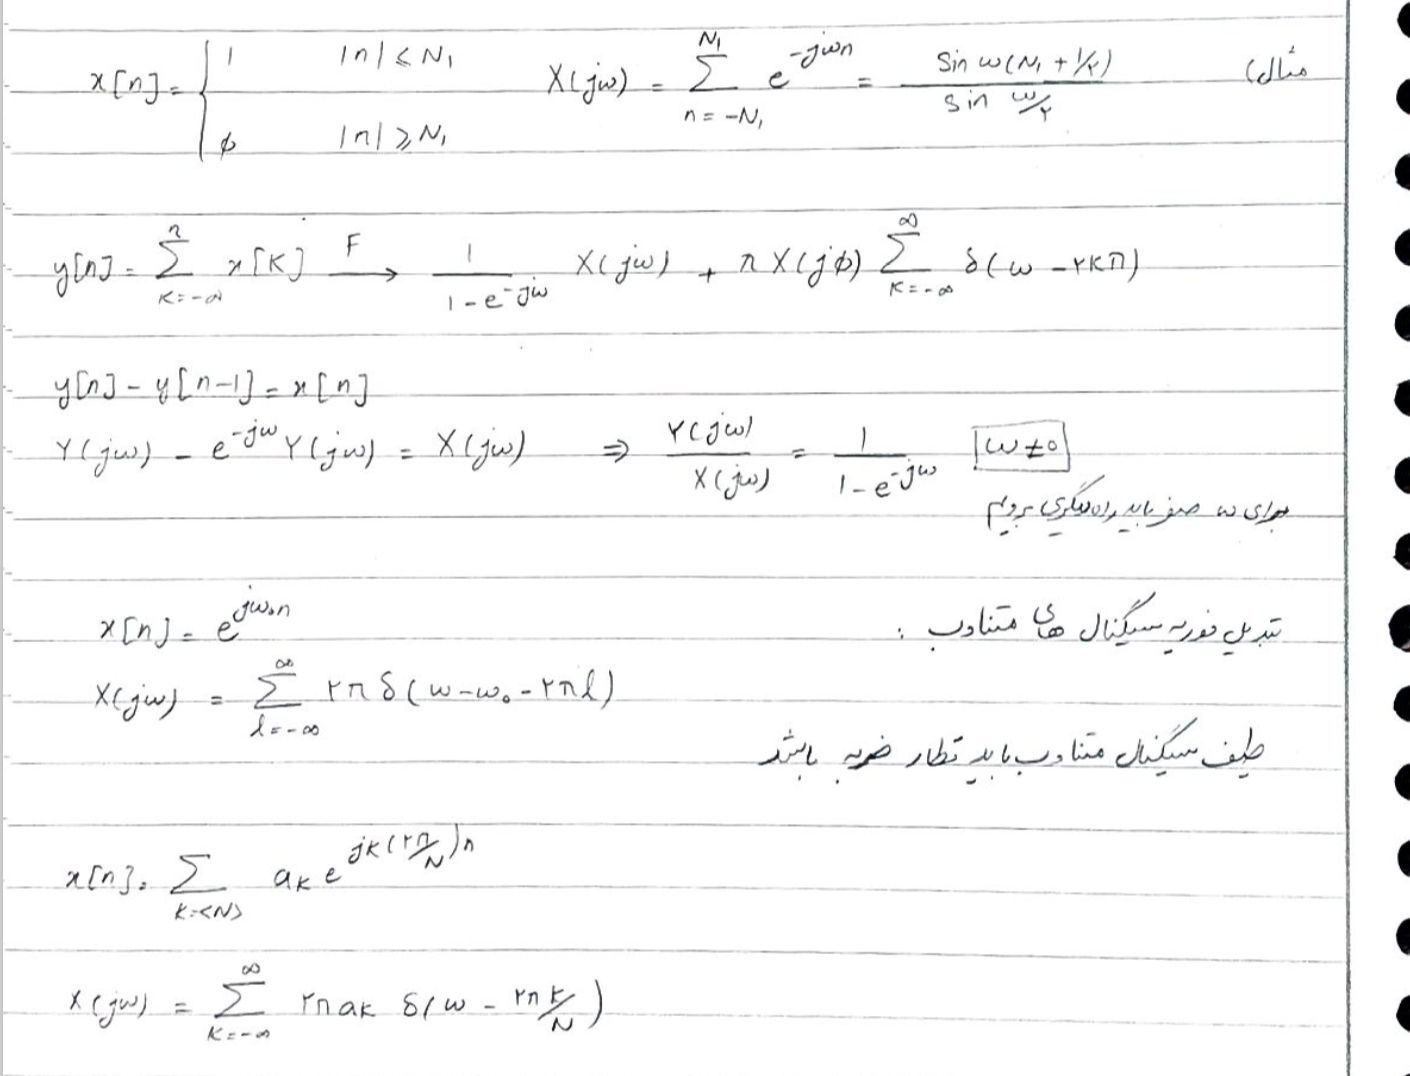 مثال) x[n] = { 1 |n| ≤ N₁ ; ϕ |n| ≥ N₁ X(jω) = Σ_{n=-N₁}^{N₁} e^{-jωn} = Sin ω(N₁ + ۱/۲) / Sin ω/۲
y[n] = Σ_{K=-∞}^{n} x[K] —F→ 1/(1-e^{-jω}) X(jω) + π X(jϕ) Σ_{K=-∞}^{∞} δ(ω - ۲Kπ)
y[n] - y[n-1] = x[n]
Y(jω) - e^{-jω} Y(jω) = X(jω) ⇒ Y(jω)/X(jω) = 1/(1-e^{-jω}) ω≠0
برای ω صفر باید راه دیگری برویم
تبدیل فوریه سیگنال های متناوب : x[n] = e^{jω₀n}
X(jω) = Σ_{l=-∞}^{∞} ۲π δ(ω - ω₀ - ۲πl)
طیف سیگنال متناوب باید قطار ضربه باشد
x[n] = Σ_{K=<N>} a_K e^{jK(۲π/N)n}
X(jω) = Σ_{K=-∞}^{∞} ۲π a_K δ(ω - ۲πK/N)